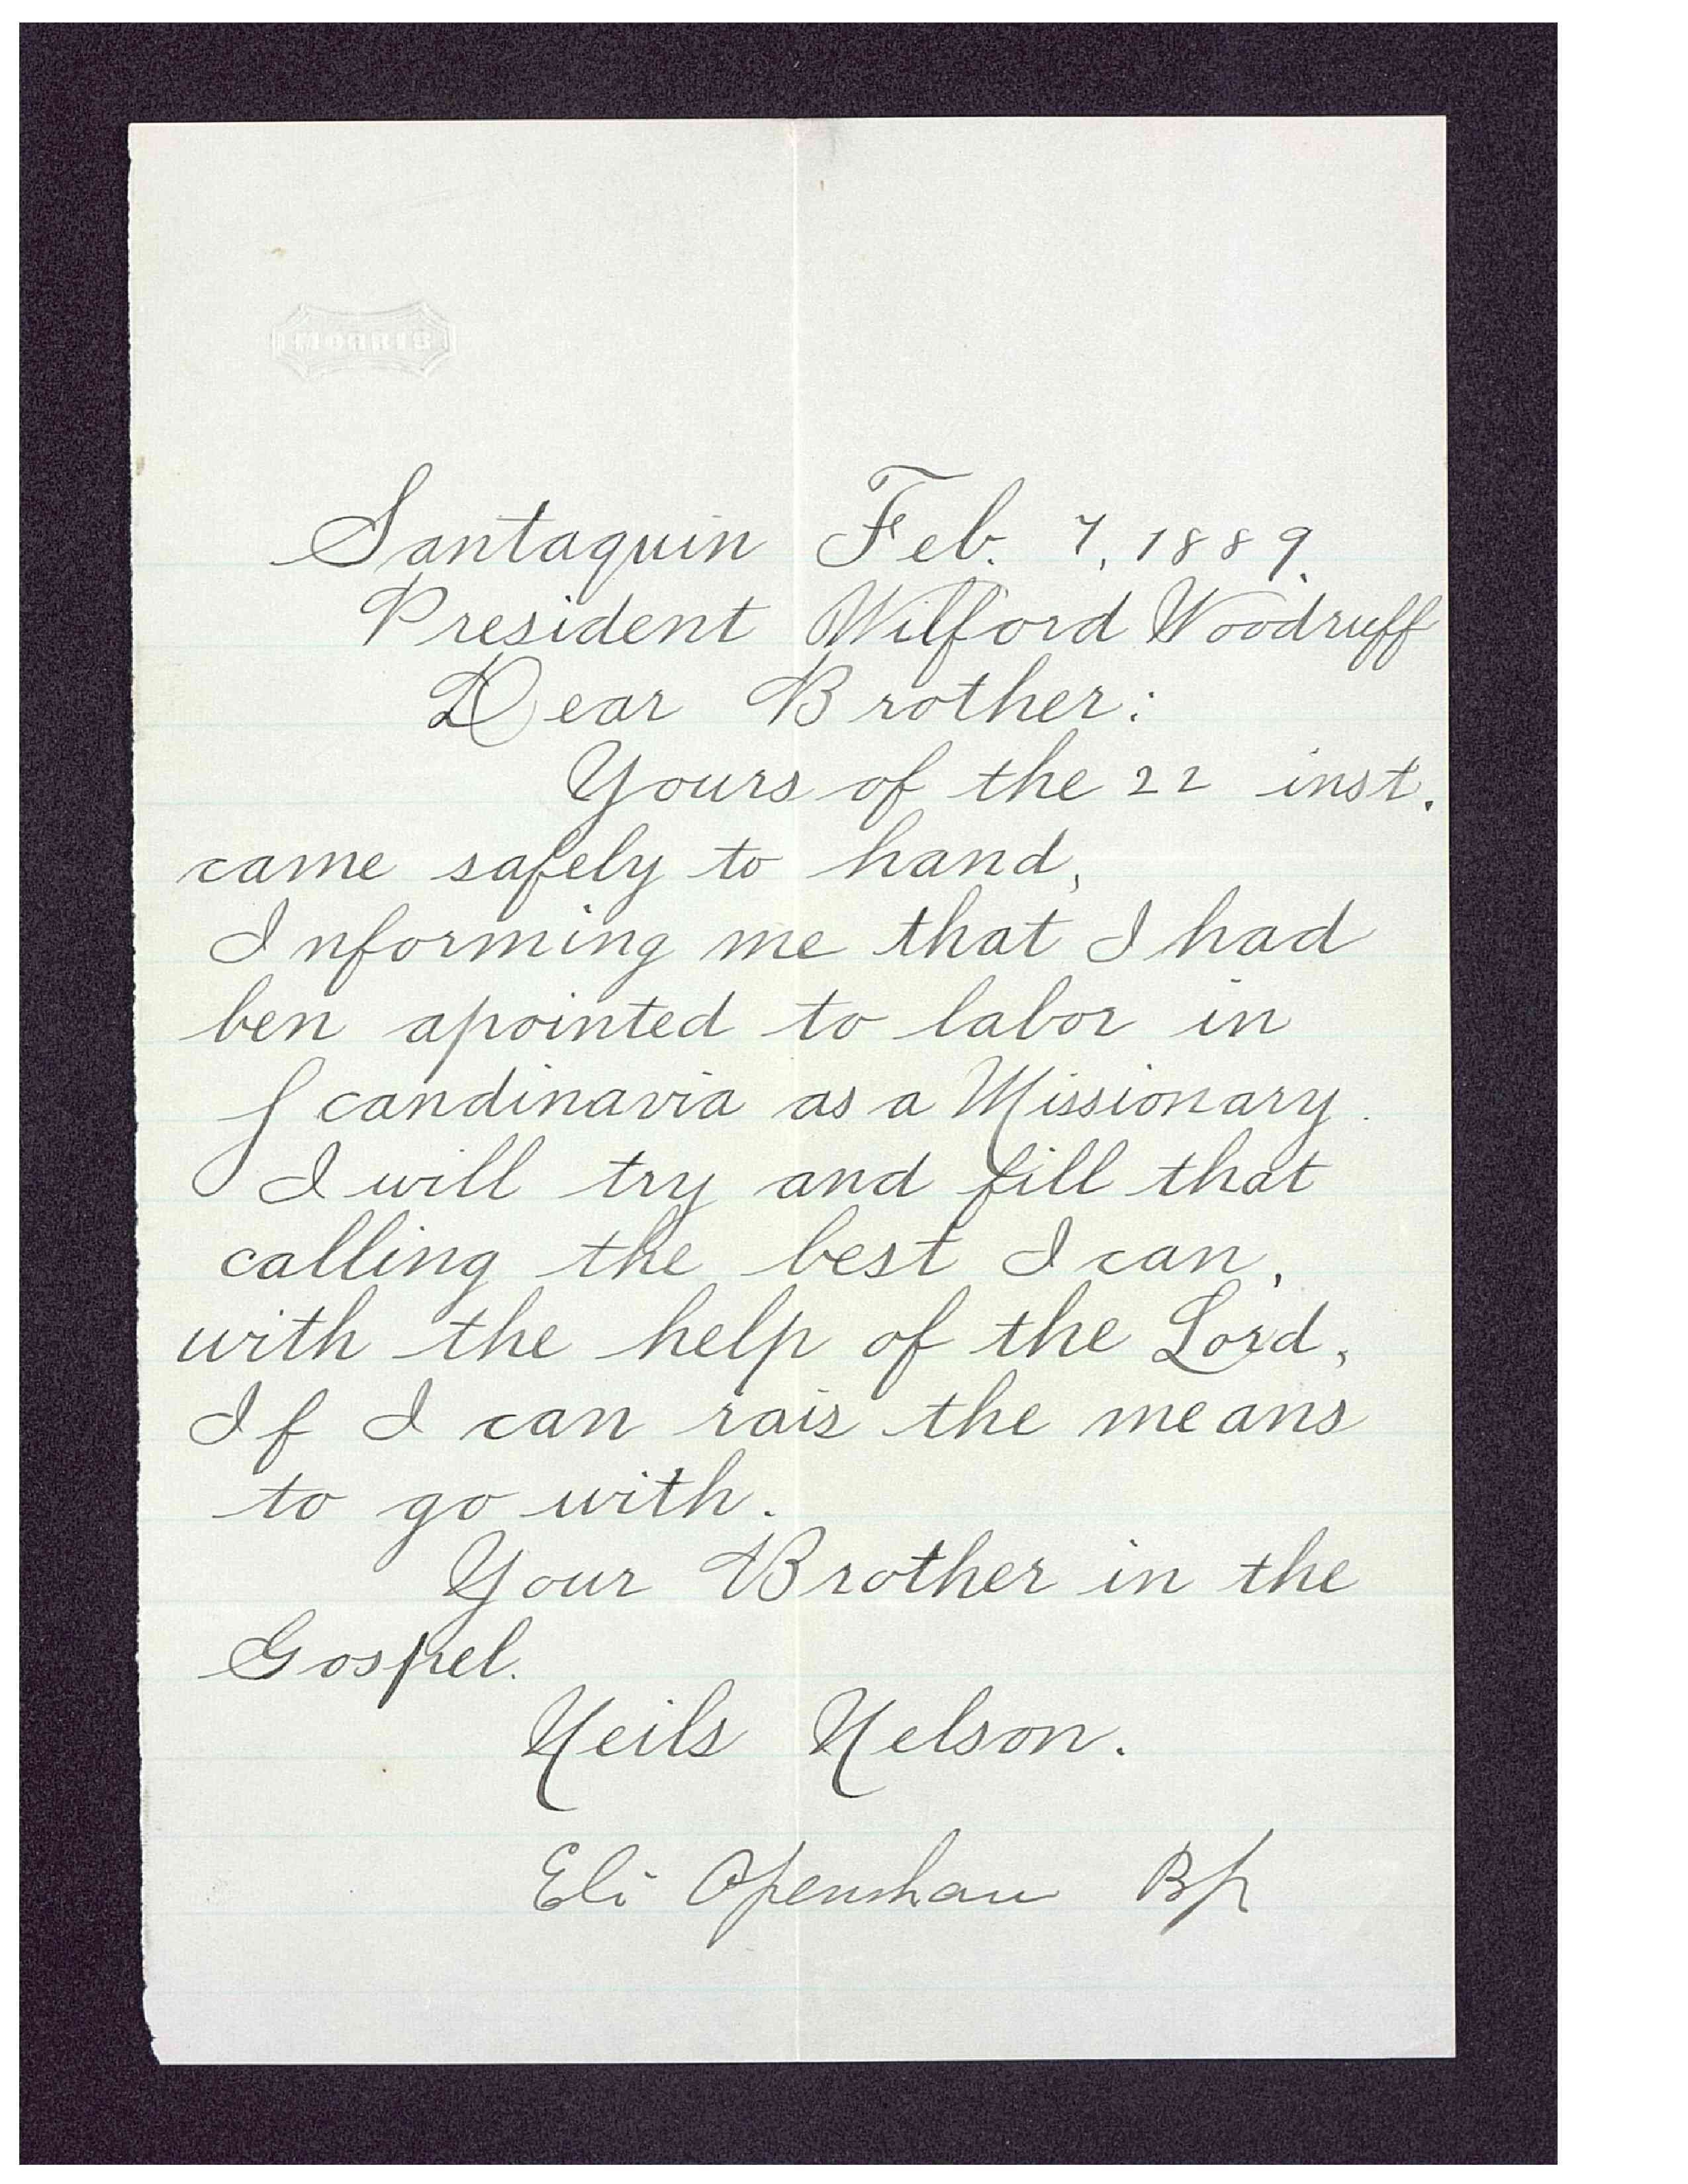 MORRIS
Santaquin Feb. 7, 1889.
President Wilford Woodruff
Dear Brother:
Yours of the 22 inst.
came safely to hand,
Informing me that I had
ben apointed to labor in
Scandinavia as a Missionary.
I will try and fill that
calling the best I can,
with the help of the Lord,
If I can rais the means
to go with.
Your Brother in the
Gospel.
Neils Nelson.
Eli Openshaw Bp